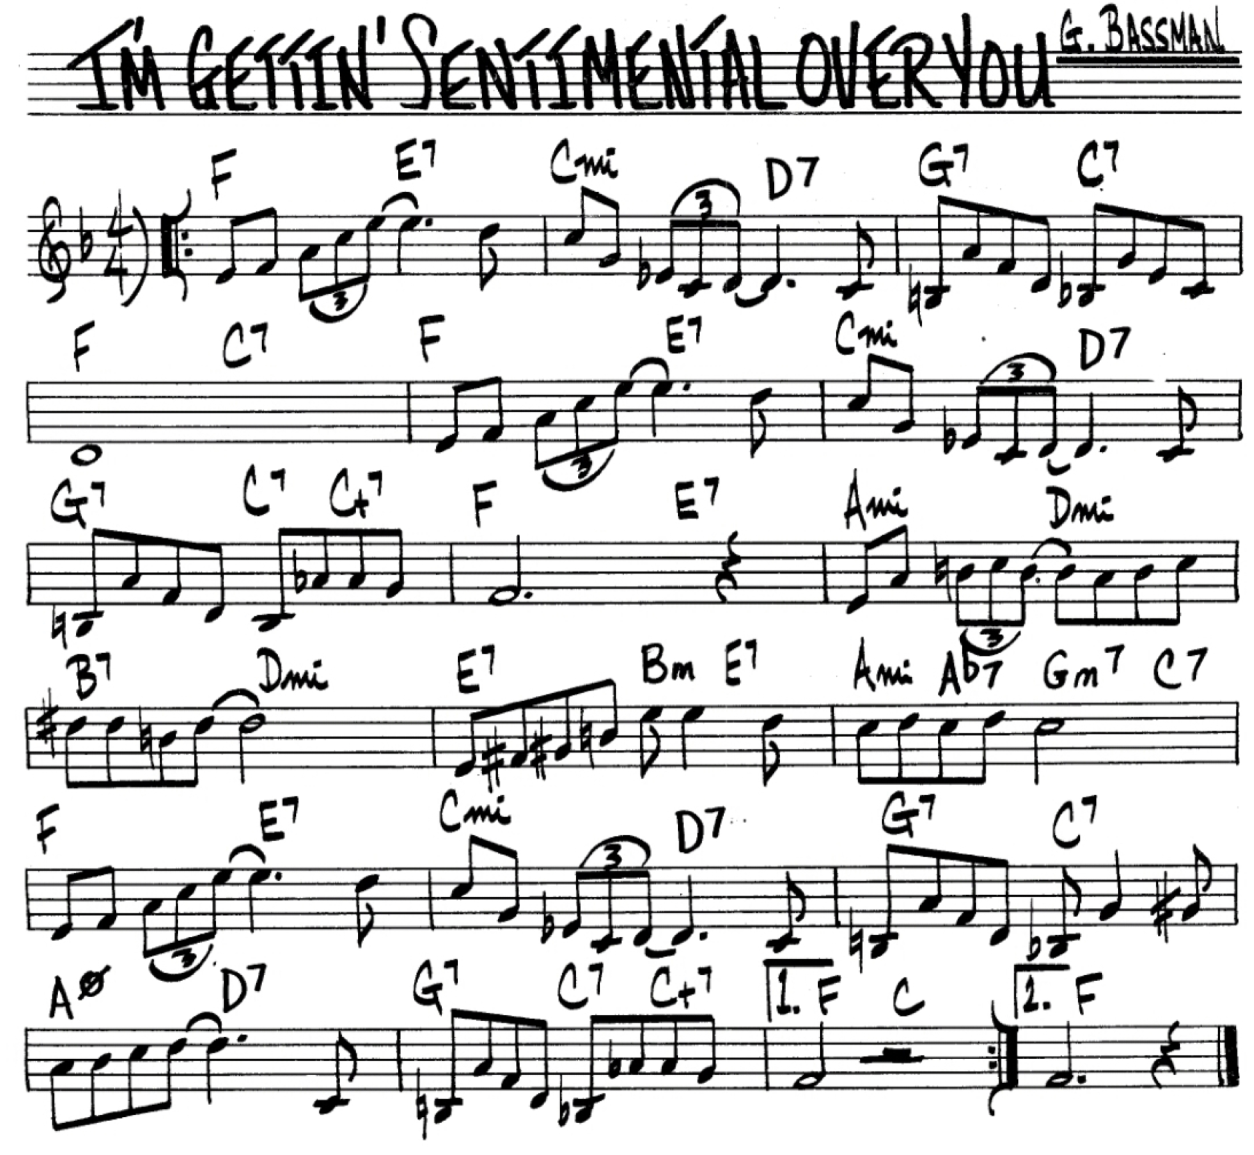 I'M GETTIN' SENTIMENTAL OVER YOU G. BASSMAN
F E7 Cmi D7 G7 C7
4 4 3 3
F C7 F E7 Cmi D7
3 3
G7 C7 C+7 F E7 Ami Dmi
3
B7 Dmi E7 Bm E7 Ami Ab7 Gm7 C7
F E7 Cmi D7 G7 C7
3 3
AØ D7 G7 C7 C+7 1. F C 2. F